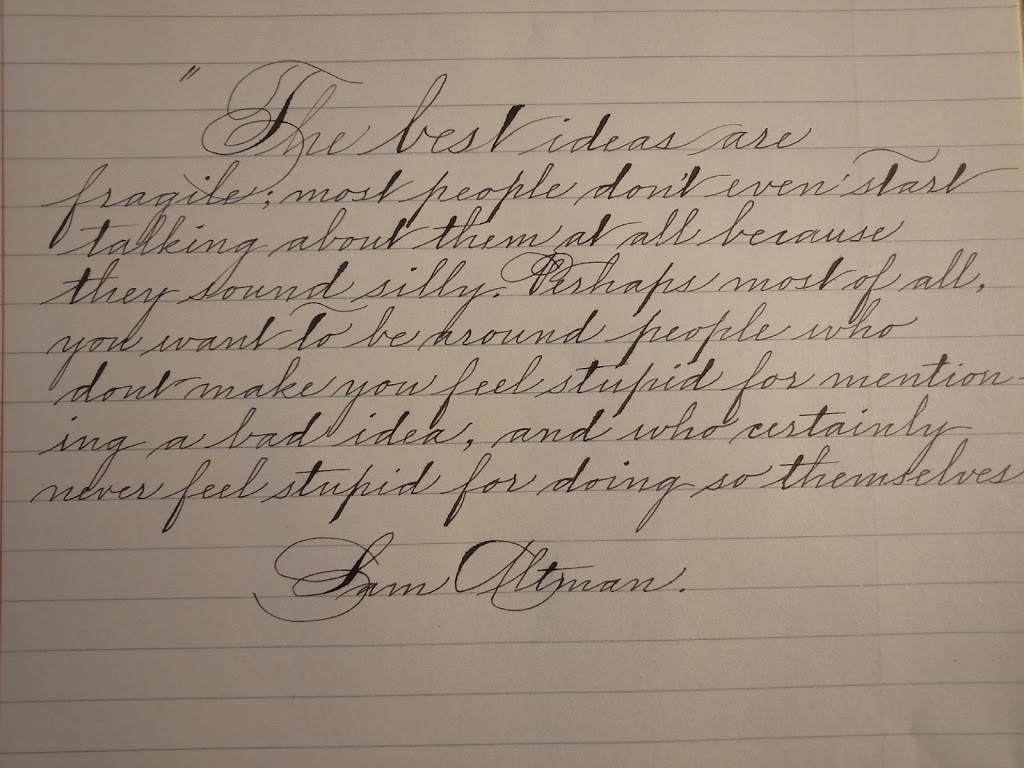 " The best ideas are
fragile; most people don't even start
talking about them at all because
they sound silly. Perhaps most of all,
you want to be around people who
dont make you feel stupid for mention-
ing a bad idea, and who certainly
never feel stupid for doing so themselves
Sam Altman.